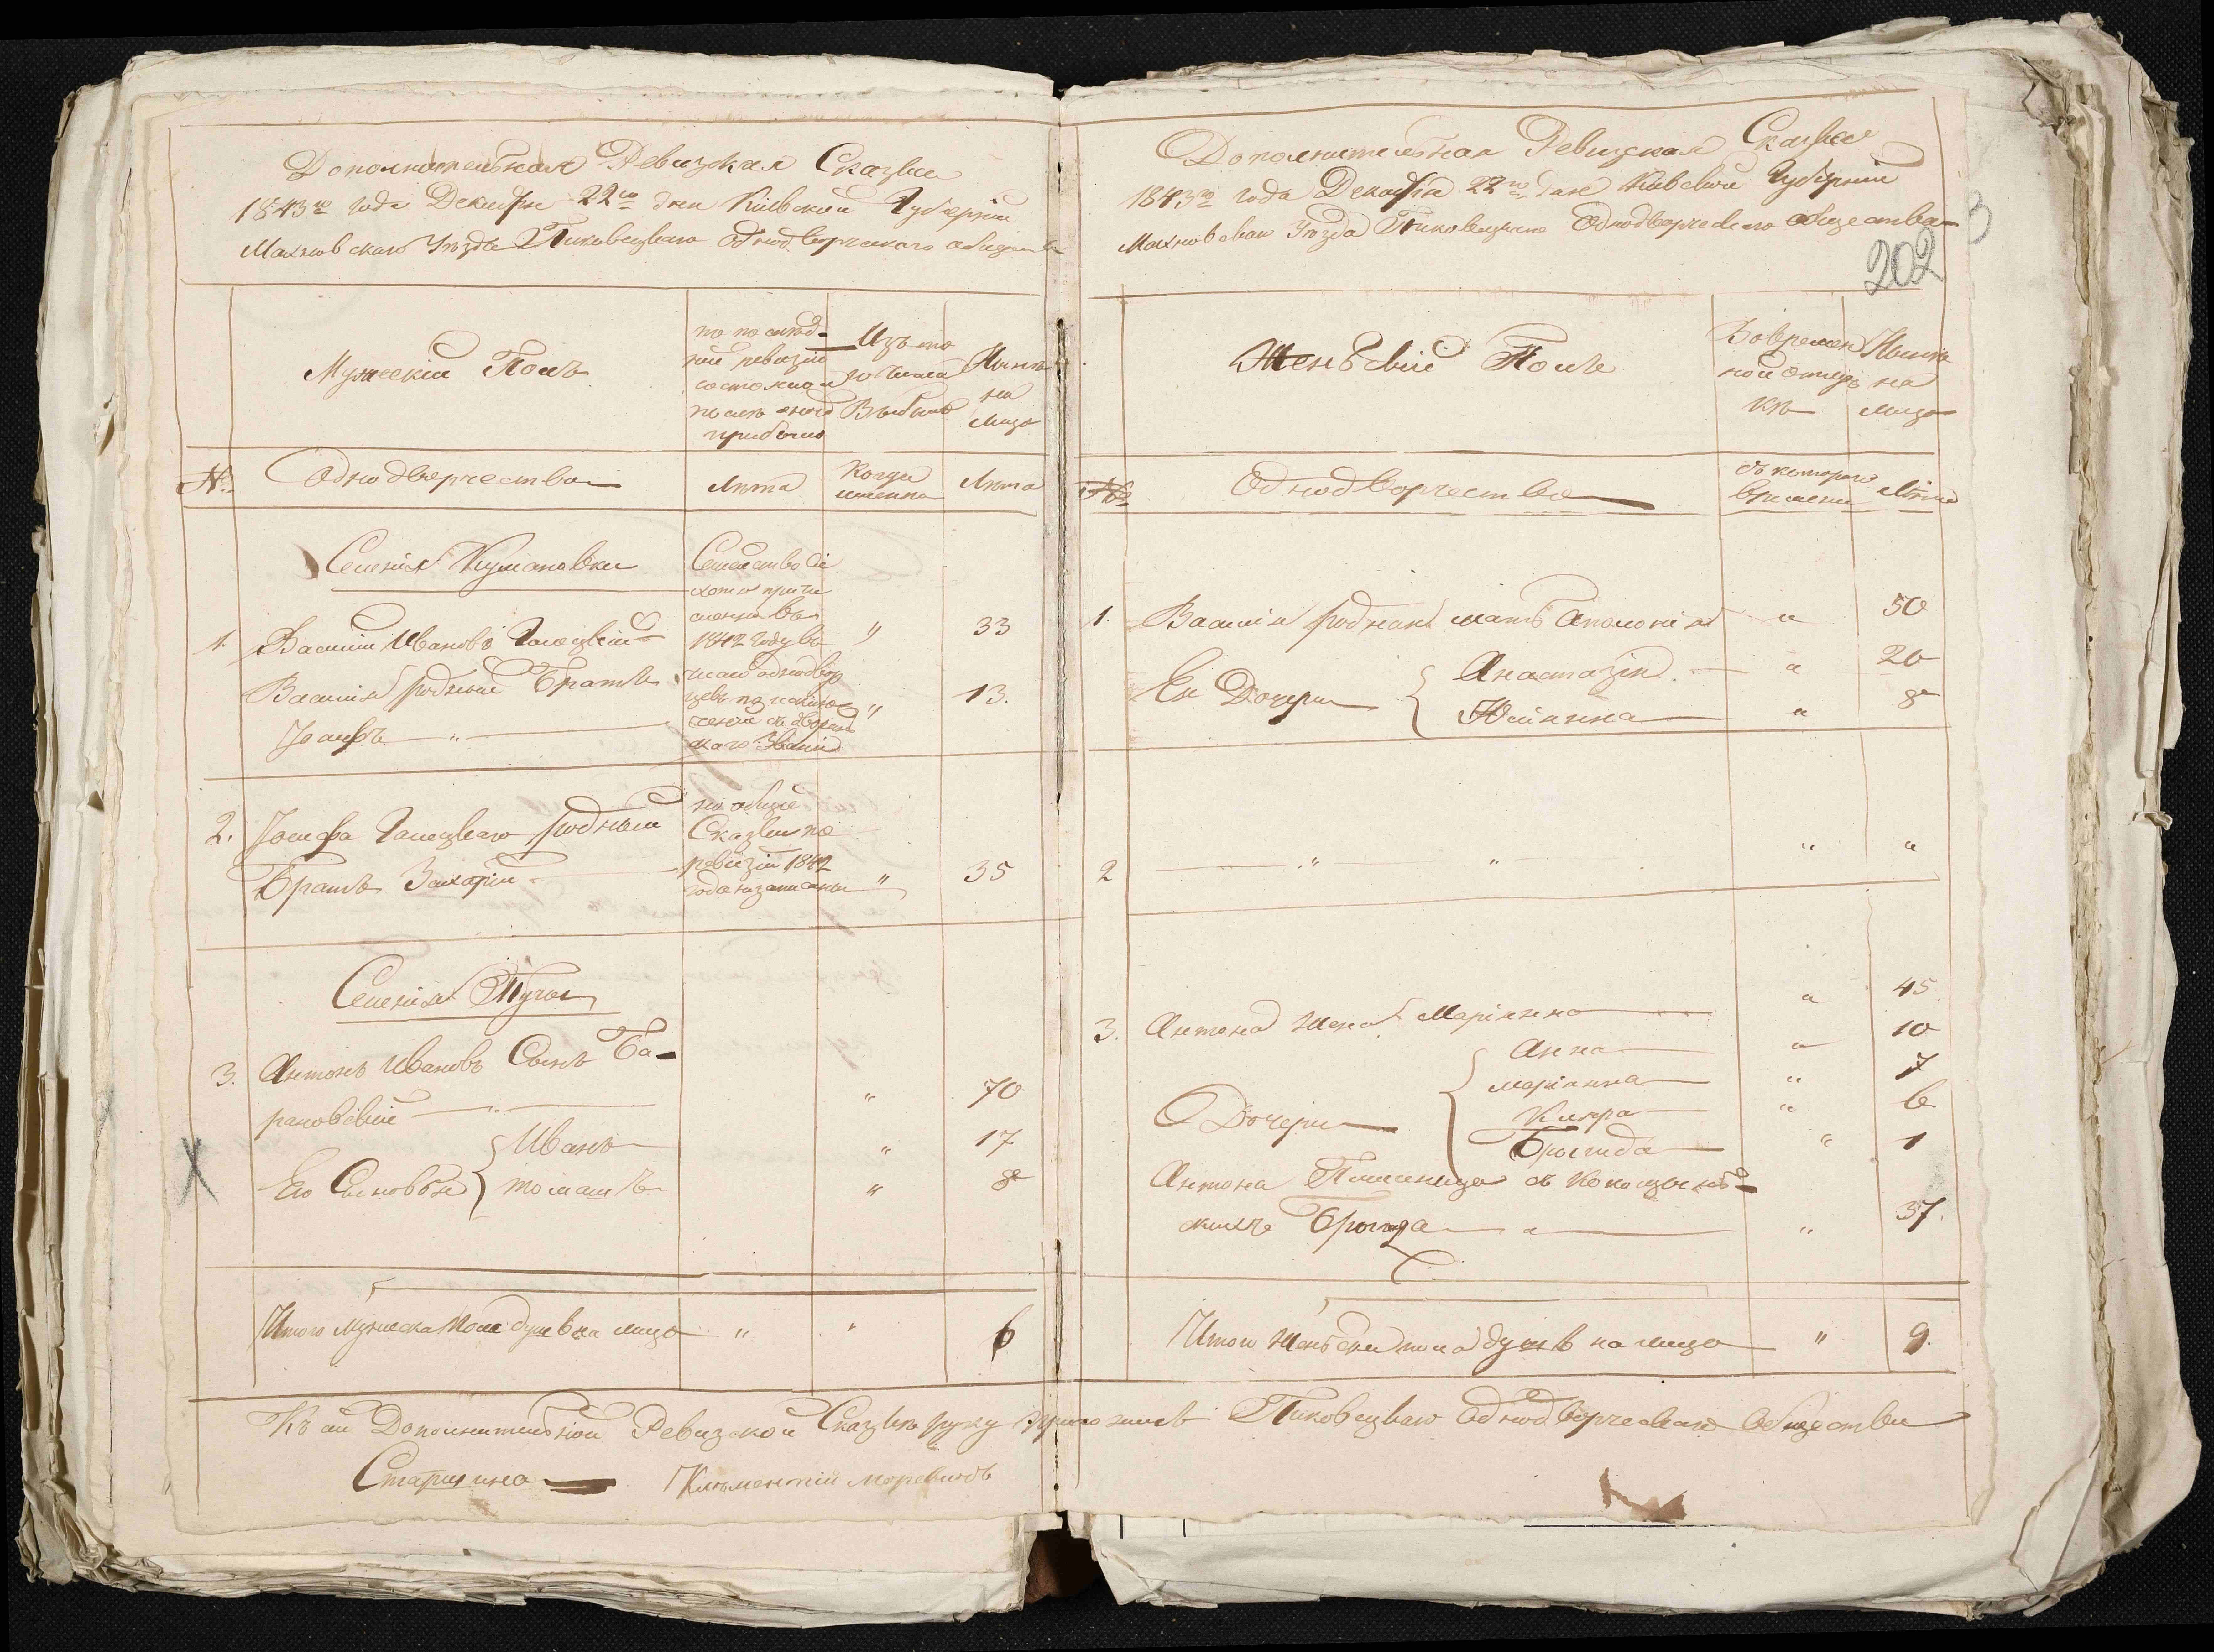 Дополнительная Ревизская Сказка
1843го года Декабря 22го дня Киевской Губерніи
Махновскаго Уезда Пиковецкаго Однодворческаго общества
Мужескій Полъ
по послед-
ней ревизіи
состояло и
после оной
прибыло
Изъ то
го числа
Выбыло
Ныне
на
лицо
№
Однодворчества
Лета
Когда
именно
Лета
Селенія Кумановки
Семейство сіе
хотя причи
слено въ
1842 году въ
число однодвор
цевъ по исклю
ченіи съ дворян
скаго званія
1. Василій Ивановъ Галецкій " 33
Василія родный Братъ
Іосифъ " " 13.
2. Іосифа Галецкаго родный
Братъ Захарій " 35
но общей
Сказки по
ревизіи 1842
года не записаны
Селенія Пучи
3. Антонъ Ивановъ Сынъ Ба-
рановскій " " 70
Его Сыновья Иванъ " 17
Томашъ " 8
Итого мужеска пола душъ на лицо " " 6
Дополнительная Ревизская Сказка
1843го года Декабря 22го дня Киевской Губерніи
Махновскаго Уезда Пиковецкаго Однодворческаго общества
202
3
Женьскій Полъ
Во времен
ной отлуч
ке
Ныне
на
лицо
№
Однодворчества
съ котораго
времени
Лета
1. Василія родная мать Аполонія " 50
Ея Дочери Анастазія " 20
Юліанна " 8
2 " " " "
3. Антона жена Маріянна " 45
Дочери Анна " 10
Маріянна " 7
Клара " 6
Бригида " 1
Антона Племянница съ
скихъ Бригида " " 37.
Итого Женьска пола душъ на лицо " 9.
Къ сей Дополнительной Ревизской Сказке руку приложилъ Пиковецкаго Однодворческаго Общества
Старшина Клементій